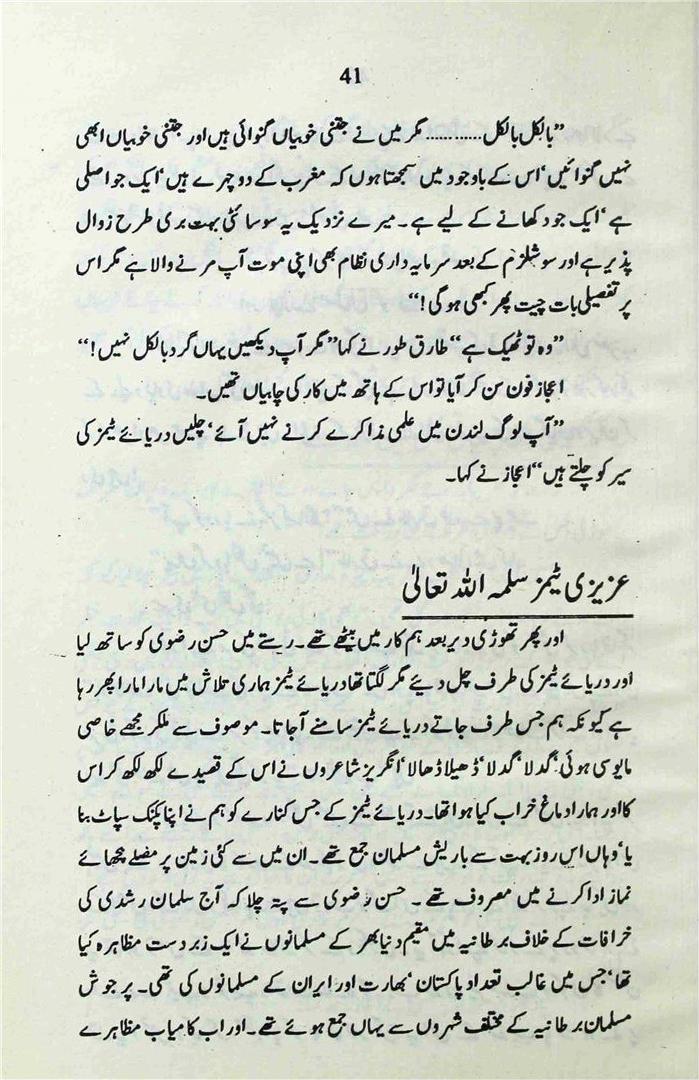 41
”بالکل بالکل............ مگر میں نے جتنی خوبیاں گنوائی ہیں اور جتنی خوبیاں ابھی
نہیں گنوائیں‘ اس کے باوجود میں سمجھتا ہوں کہ مغرب کے دو چہرے ہیں‘ ایک جو اصلی
ہے‘ ایک جو دکھانے کے لیے ہے۔ میرے نزدیک یہ سوسائٹی بہت بری طرح زوال
پذیر ہے اور سوشلزم کے بعد سرمایہ داری نظام بھی اپنی موت آپ مرنے والا ہے مگر اس
پر تفصیلی بات چیت پھر کبھی ہو گی!“
”وہ تو ٹھیک ہے“ طارق طور نے کہا ”مگر آپ دیکھیں یہاں گرد بالکل نہیں!“
اعجاز فون سن کر آیا تو اس کے ہاتھ میں کار کی چابیاں تھیں۔
”آپ لوگ لندن میں علمی مذاکرے کرنے نہیں آئے‘ چلیں دریائے ٹیمز کی
سیر کو چلتے ہیں“ اعجاز نے کہا۔
عزیزی ٹیمز سلمہ اللہ تعالیٰ
اور پھر تھوڑی دیر بعد ہم کار میں بیٹھے تھے۔ رستے میں حسن رضوی کو ساتھ لیا
اور دریائے ٹیمز کی طرف چل دیئے مگر لگتا تھا دریائے ٹیمز ہماری تلاش میں مارا مارا پھر رہا
ہے کیونکہ ہم جس طرف جاتے دریائے ٹیمز سامنے آ جاتا۔ موصوف سے ملکر مجھے خاصی
مایوسی ہوئی‘ گدلا‘ گدلا‘ ڈھیلا ڈھالا‘ انگریز شاعروں نے اس کے قصیدے لکھ لکھ کر اس
کا اور ہمارا دماغ خراب کیا ہوا تھا۔ دریائے ٹیمز کے جس کنارے کو ہم نے اپنا پکنک سپاٹ بنا
یا‘ وہاں اس روز بہت سے باریش مسلمان جمع تھے۔ ان میں سے کئی زمین پر مصلے بچھائے
نماز ادا کرنے میں مصروف تھے۔ حسن رضوی سے پتہ چلا کہ آج سلمان رشدی کی
خرافات کے خلاف برطانیہ میں مقیم دنیا بھر کے مسلمانوں نے ایک زبردست مظاہرہ کیا
تھا‘ جس میں غالب تعداد پاکستان‘ بھارت اور ایران کے مسلمانوں کی تھی۔ پرجوش
مسلمان برطانیہ کے مختلف شہروں سے یہاں جمع ہوئے تھے۔ اور اب کامیاب مظاہرے